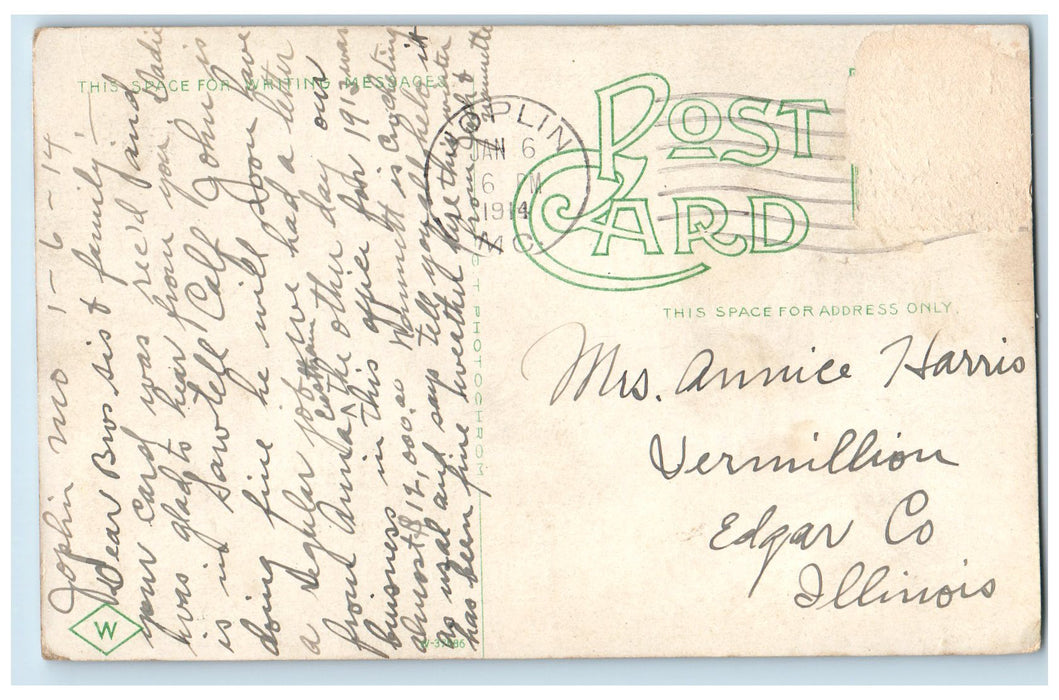 THIS SPACE FOR WRITING MESSAGES
Joplin Mo 1-6-14
Dear Bros sis & family,
your card was rec'd and
was glad to hear from you,
is in Sawtell Calf John is
doing fine he will soon have
a regular job we had a leter
from Anna the other day our
buisness in this office for 1913 was
almost $ 12,000.00 Nannette is crocheting
as usual and says tell you all hello it
has been fine weather here this winter
from
Nannette
W
W-37486
PHOTOCHROM
JOPLIN
JAN 6
6 PM
1914
MO.
POST CARD
THIS SPACE FOR ADDRESS ONLY
Mrs. Annice Harris
Vermillion
Edgar Co
Illinois